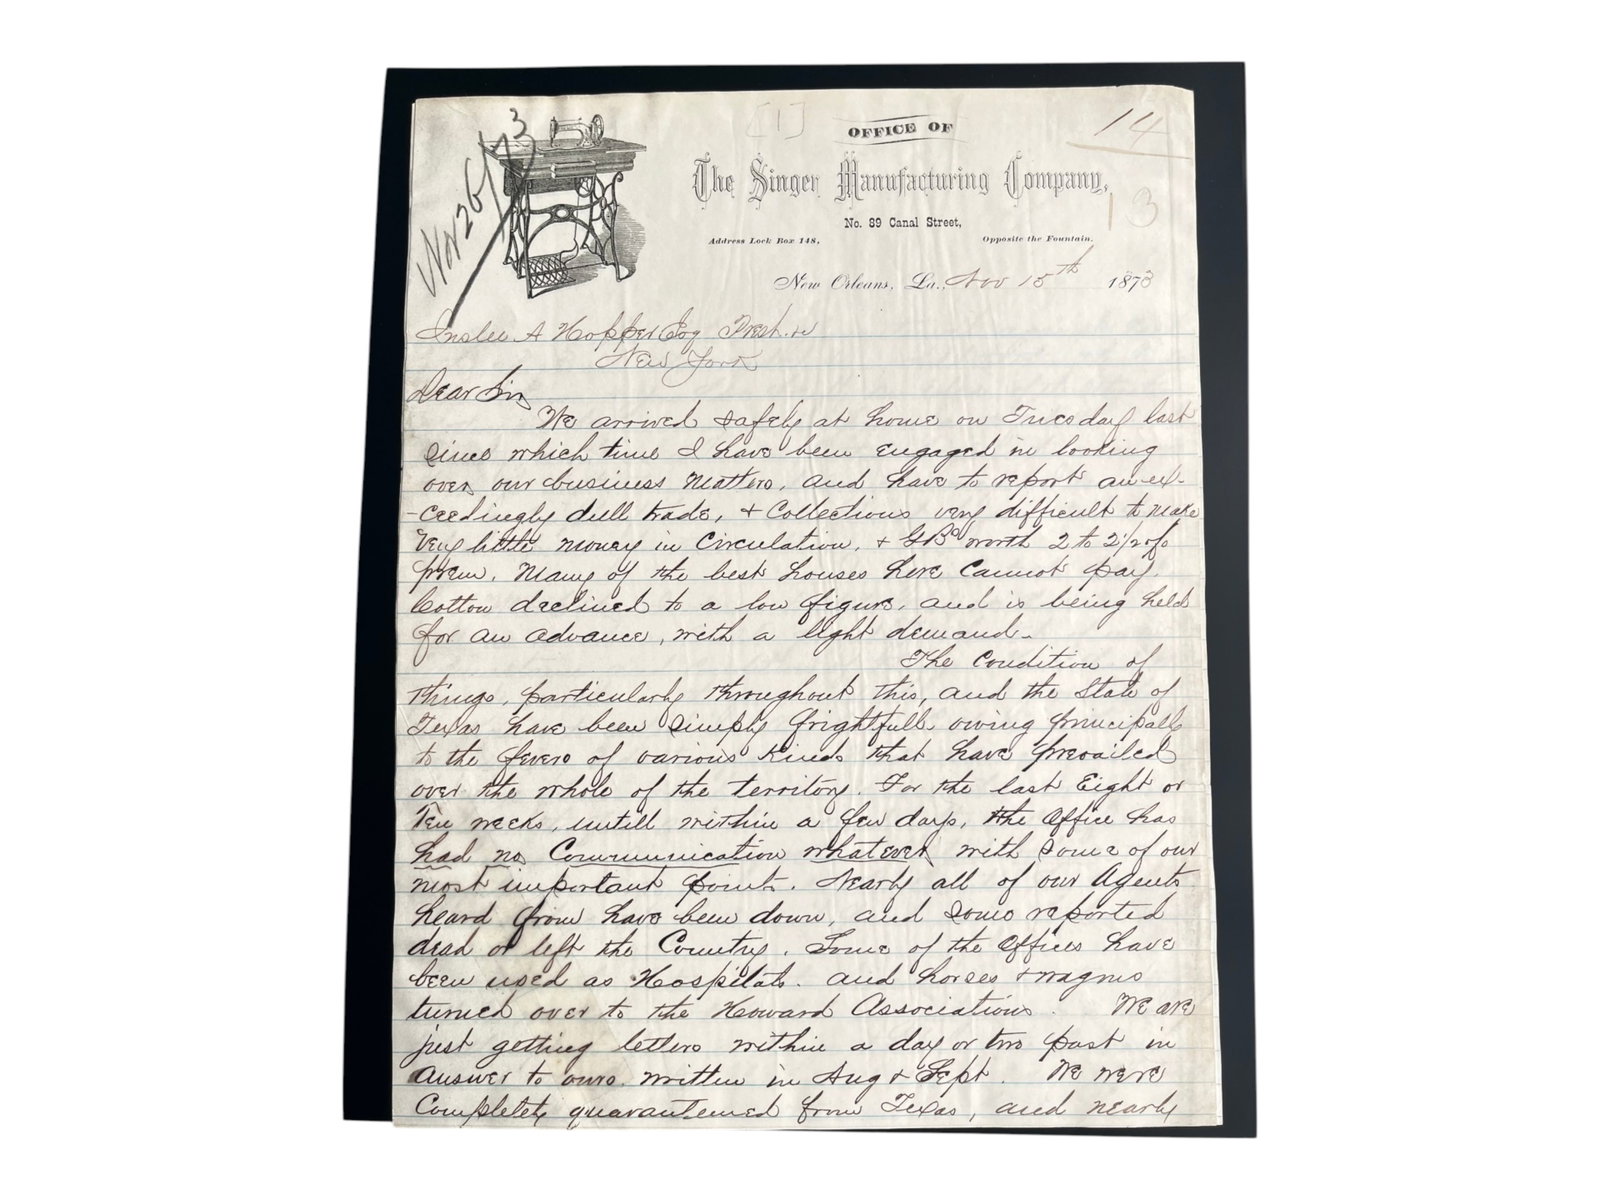 Nov 26/73
[1]
OFFICE OF
14
The Singer Manufacturing Company,
13
No. 89 Canal Street,
Address Lock Box 148,
Opposite the Fountain.
New Orleans, La., Nov 15th 1873
Inslee A Hopper Esq Prest.
New York
Dear Sir,
We arrived safely at home on Tuesday last
since which time I have been engaged in looking
over our business matters, and have to report an ex-
-ceedingly dull trade, & Collections very difficult to make
Very little money in Circulation, & worth 2 to 2 1/2 %
prem. Many of the best houses here cannot pay.
Cotton declined to a low figure, and is being held
for an advance, with a light demand-
The Condition of
things, particularly throughout this, and the State of
Texas have been simply frightfull owing principally
to the fevers of various kinds that have prevailed
over the whole of the territory. For the last Eight or
Ten weeks, untill within a few days, the Office has
had no Communication whatever with some of our
most important points. Nearly all of our Agents
heard from have been down, and some reported
dead or left the Country. Some of the Offices have
been used as Hospitals. and horses & wagons
turned over to the Howard Associations. We are
just getting letters within a day or two past in
answer to ours written in Aug & Sept. We were
Completely quarantened from Texas, and nearly